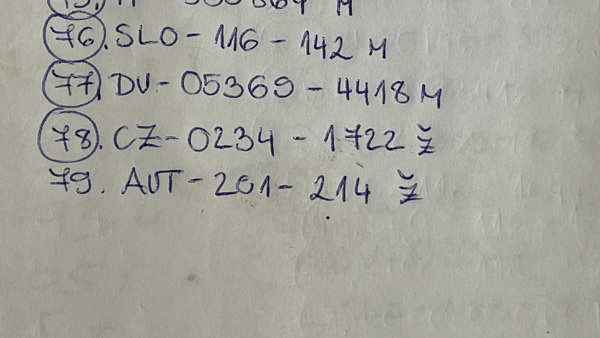 76. SLO - 116 - 142 M
77. DV - 05369 - 4418 M
78. CZ - 0234 - 1722 Ž
79. AUT - 201 - 214 Ž